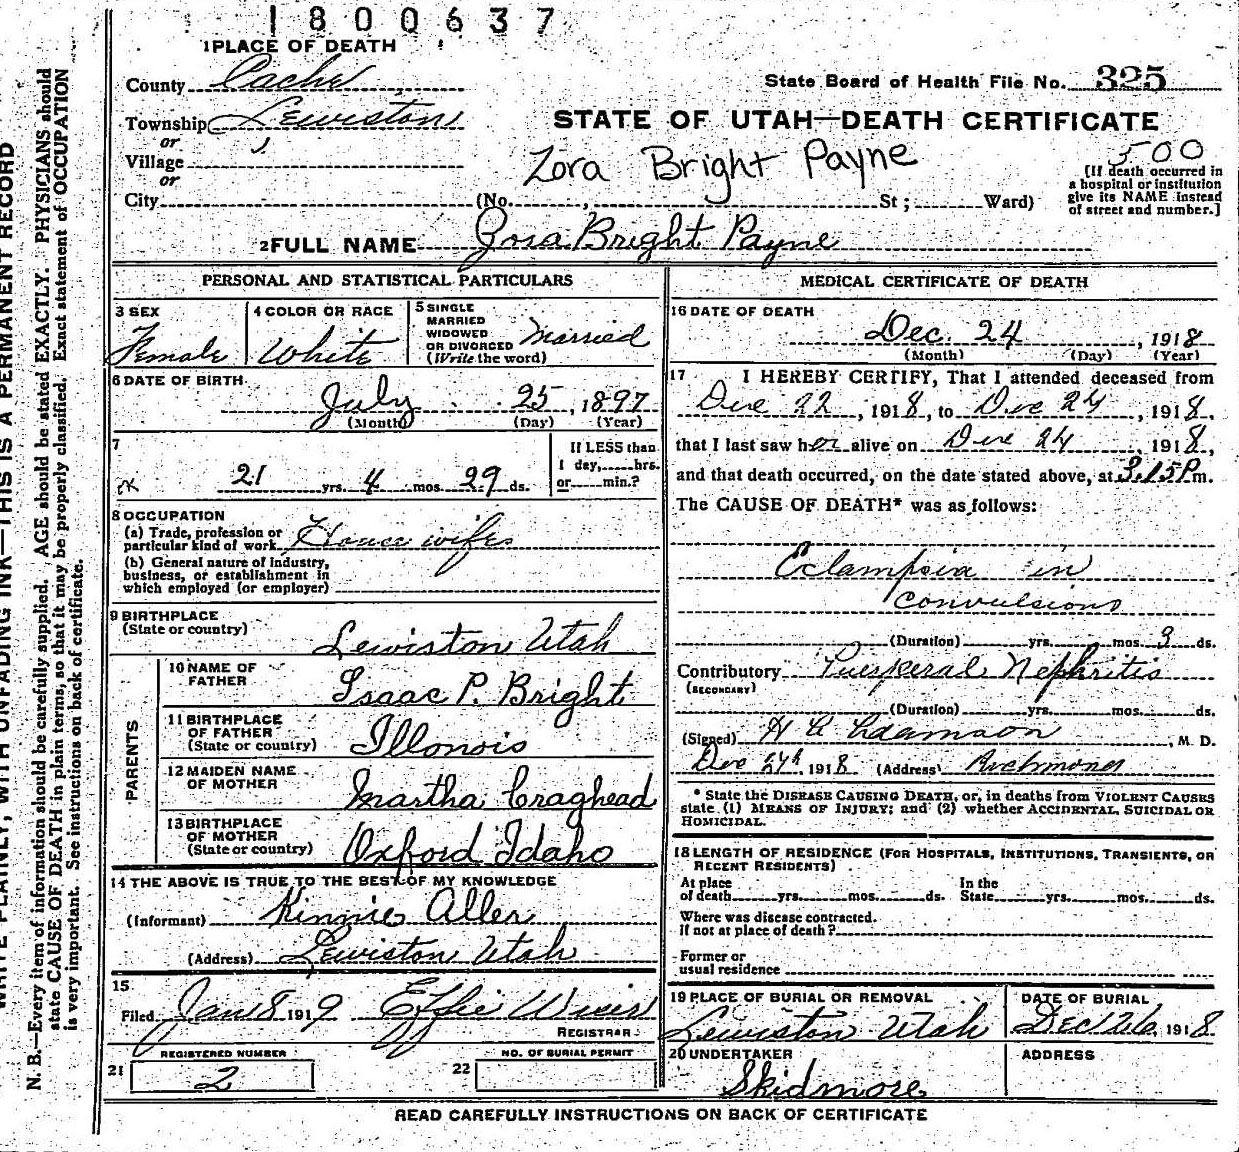 1800637
1 PLACE OF DEATH
County Cache
State Board of Health File No. 325
Township Lewiston
or
Village
or
City
STATE OF UTAH—DEATH CERTIFICATE
Zora Bright Payne
500
(No. , St ; Ward)
[If death occurred in
a hospital or institution
give its NAME instead
of street and number.]
2 FULL NAME Zora Bright Payne
PERSONAL AND STATISTICAL PARTICULARS
3 SEX
Female
4 COLOR OR RACE
White
5 SINGLE
MARRIED
WIDOWED
OR DIVORCED
(Write the word)
Married
6 DATE OF BIRTH
July 25, 1897
(Month) (Day) (Year)
7
21 yrs. 4 mos. 29 ds.
If LESS than
1 day, hrs.
or min.?
8 OCCUPATION
(a) Trade, profession or
particular kind of work House wife
(b) General nature of industry,
business, or establishment in
which employed (or employer)
9 BIRTHPLACE
(State or country) Lewiston Utah
PARENTS
10 NAME OF
FATHER Isaac P. Bright
11 BIRTHPLACE
OF FATHER
(State or country) Illonois
12 MAIDEN NAME
OF MOTHER Martha Craghead
13 BIRTHPLACE
OF MOTHER
(State or country) Oxford Idaho
14 THE ABOVE IS TRUE TO THE BEST OF MY KNOWLEDGE
(Informant) Kinnie Allen
(Address) Lewiston Utah
15
Filed Jan 8 1919 Effie
REGISTRAR.
REGISTERED NUMBER
21 2
NO. OF BURIAL PERMIT
22
MEDICAL CERTIFICATE OF DEATH
16 DATE OF DEATH
Dec. 24, 1918
(Month) (Day) (Year)
17 I HEREBY CERTIFY, That I attended deceased from
Dec 22, 1918, to Dec 24, 1918,
that I last saw her alive on Dec 24, 1918,
and that death occurred, on the date stated above, at 3.15 P m.
The CAUSE OF DEATH* was as follows:
Eclampsia in
convulsions
(Duration) yrs. mos. 3 ds.
Contributory Puerperal Nephritis
(SECONDARY)
(Duration) yrs. mos. ds.
(Signed) Adamson, M. D.
Dec 24th, 1918 (Address) Richmond
* State the DISEASE CAUSING DEATH, or, in deaths from VIOLENT CAUSES
state (1) MEANS OF INJURY; and (2) whether ACCIDENTAL, SUICIDAL OR
HOMICIDAL.
18 LENGTH OF RESIDENCE (FOR HOSPITALS, INSTITUTIONS, TRANSIENTS, OR
RECENT RESIDENTS)
At place
of death yrs. mos. ds.
In the
State yrs. mos. ds.
Where was disease contracted.
If not at place of death?
Former or
usual residence
19 PLACE OF BURIAL OR REMOVAL
Lewiston Utah
DATE OF BURIAL
Dec 26, 1918
20 UNDERTAKER
Skidmore
ADDRESS
READ CAREFULLY INSTRUCTIONS ON BACK OF CERTIFICATE
WRITE PLAINLY, WITH UNFADING INK—THIS IS A PERMANENT RECORD
N. B.—Every item of information should be carefully supplied. AGE should be stated EXACTLY. PHYSICIANS should
state CAUSE OF DEATH in plain terms, so that it may be properly classified. Exact statement of OCCUPATION
is very important. See instructions on back of certificate.